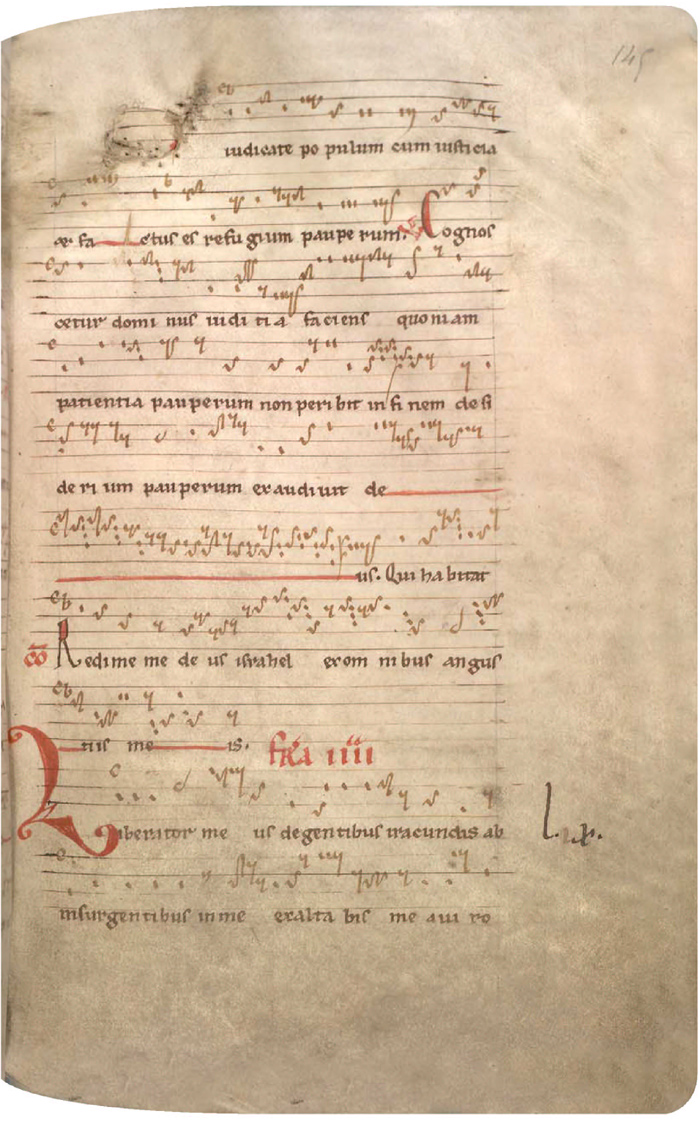 145
iudicate po pulum cum iusticia
et fa ctus es refu gium paupe rum. Cognos
cetur domi nus iudi ti a faciens quoniam
patientia pauperum non peri bit in fi nem desi
de ri um pauperum exaudiuit de
us. Qui habitat
co Redime me de us israhel ex om nibus angus
tiis me is. fr̃a iiii
Liberator me us degentibus iracundis ab
insurgentibus in me exalta bis me a ui ro